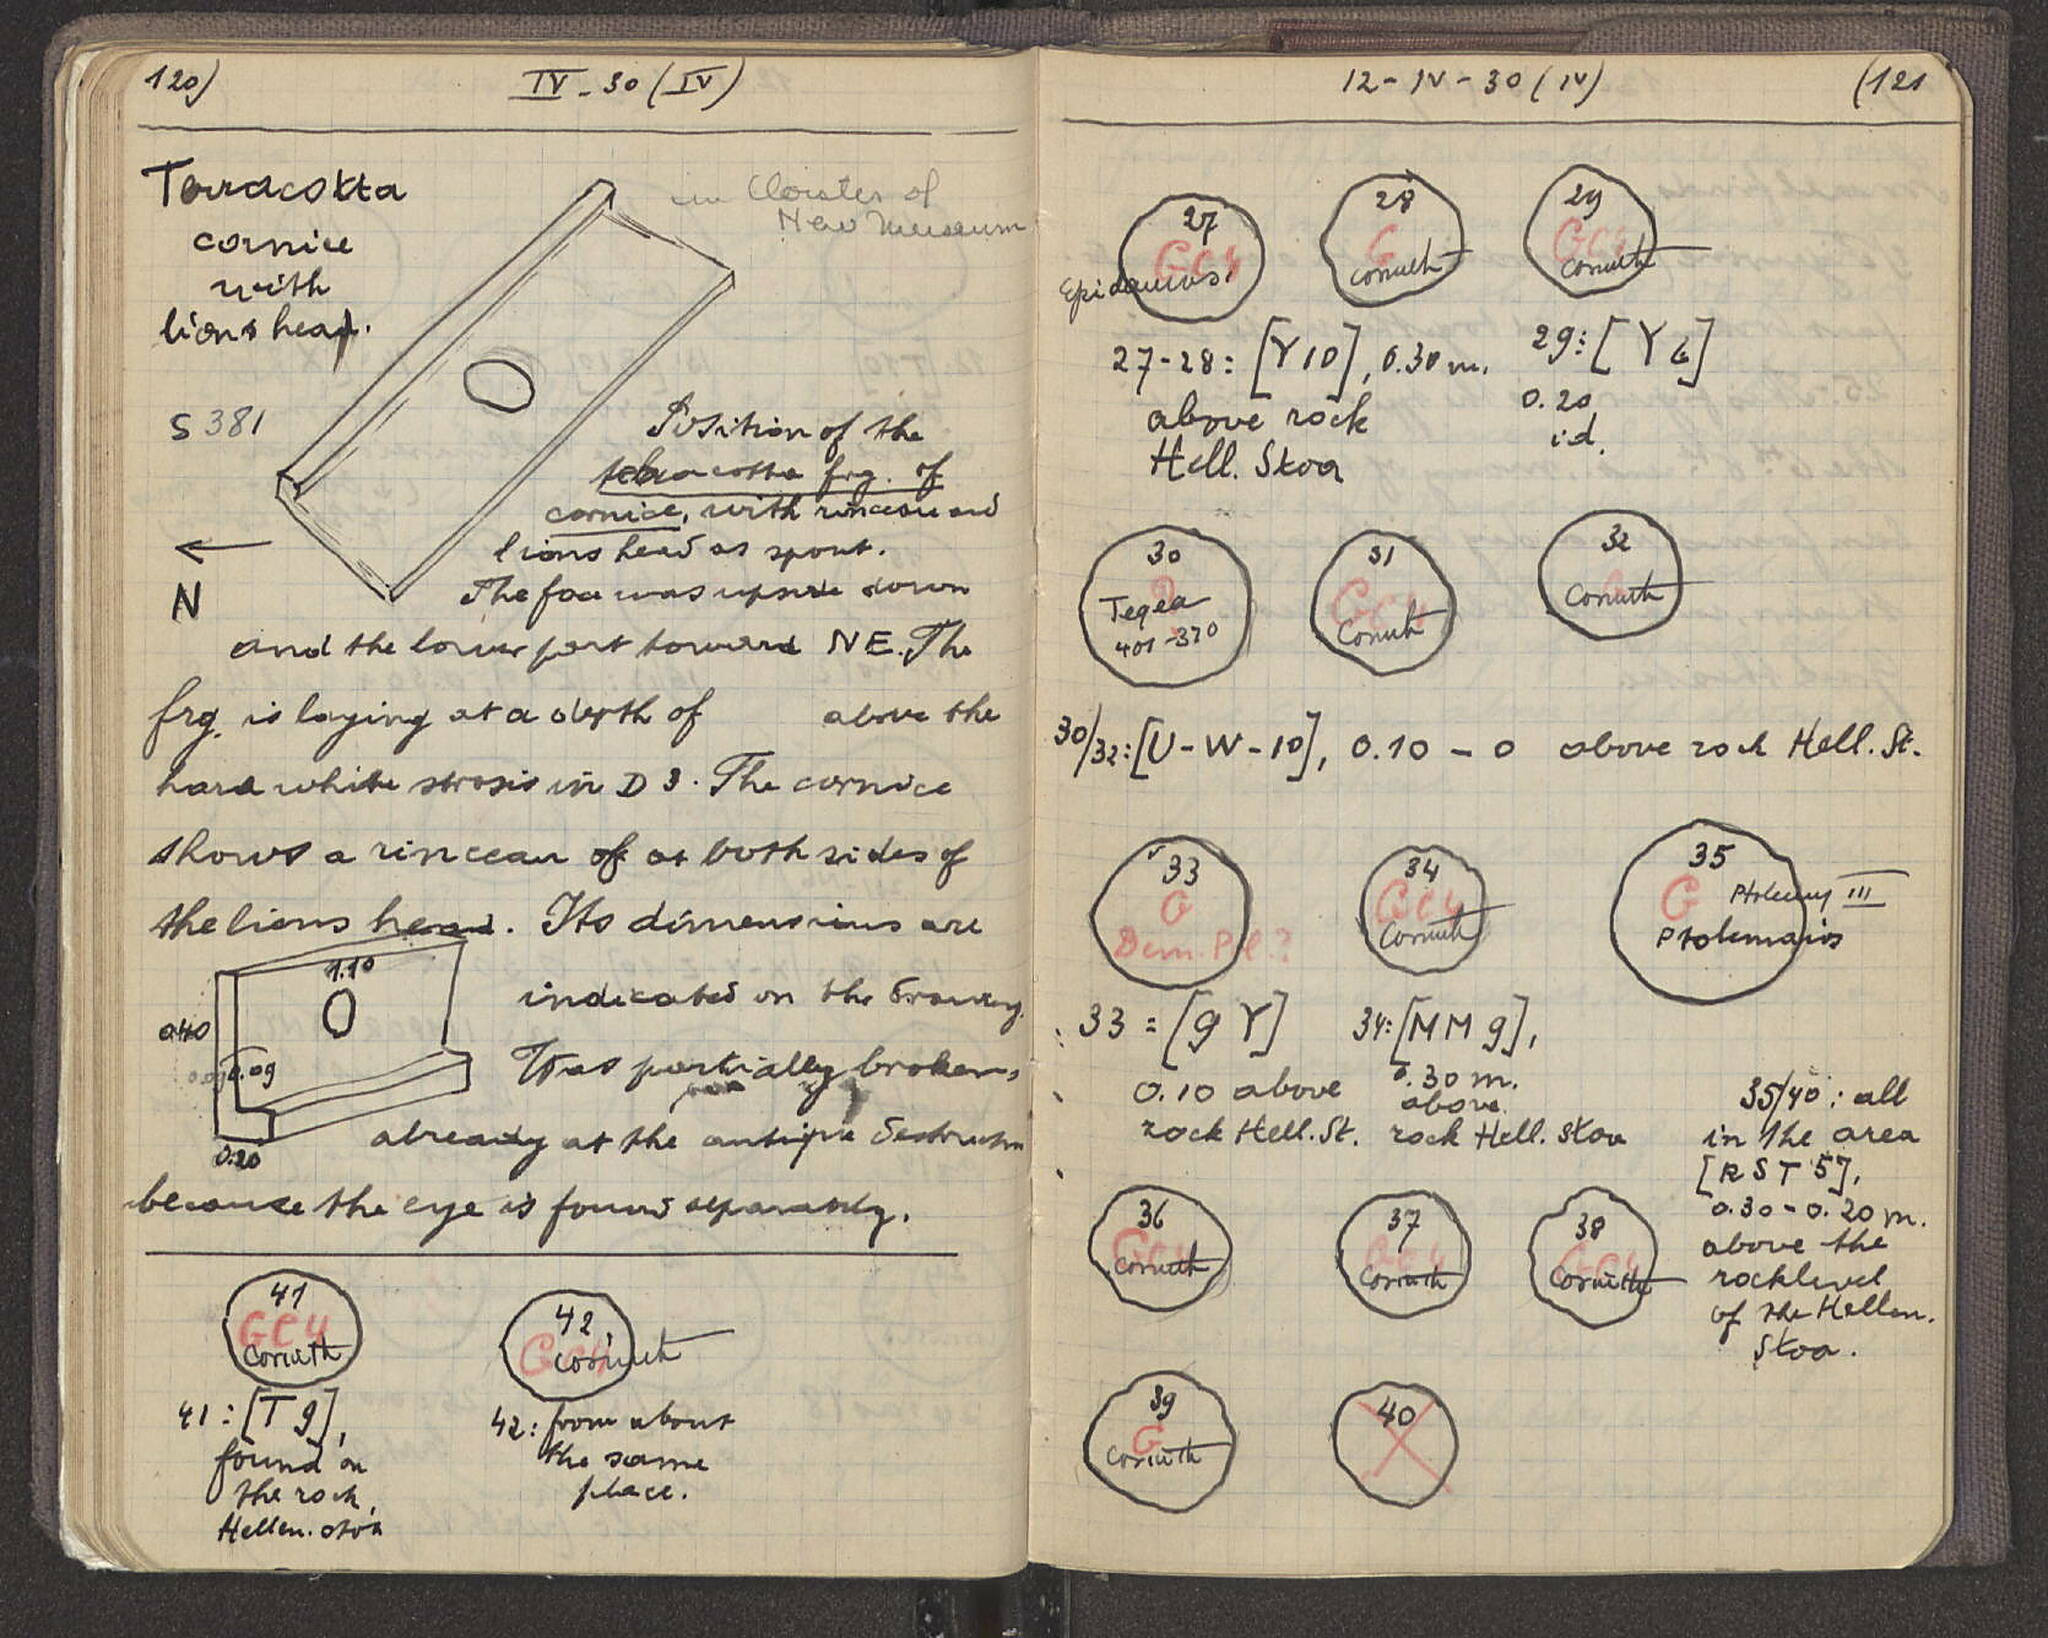 120)
IV - 30 (IV)
Terracotta
cornice
with
lions head.
in Cloister of
New Museum
S 381
N
Position of the
terracotta frg. of
cornice, with rinceau and
lions head as spout.
The face was upside down
and the lower part toward NE. The
frg. is laying at a depth of above the
hard white strosis in D 3. The cornice
shows a rinceau of at both sides of
the lions head. Its dimensions are
1.10
0.40
0.09
0.20
indicated on the drawing.
Was partially broken,
already at the antique destruction
because the eye is found separately.
41
GC4
Corinth
42
GC4
Corinth
41: [T 9],
found on
the rock,
Hellen. stoa
42: from about
the same
place.
12 - IV - 30 (IV)
(121
27
GC4
Epidauros
28
G
Corinth
29
GC4
Corinth
27-28: [Y10], 0.30 m.
above rock
Hell. Stoa
29: [Y 6]
0.20
id.
30
Tegea
401-370
31
GC4
Corinth
32
Corinth
30/32: [U-W-10], 0.10 - 0 above rock Hell. St.
33
G
Dem. Pol?
34
GC4
Corinth
35
G
Ptolemy III
Ptolemaios
33 = [9 Y]
0.10 above
rock Hell. St.
34: [MM 9],
0.30 m.
above
rock Hell. Stoa
35/40: all
in the area
[RST 5],
0.30 - 0.20 m.
above the
rocklevel
of the Hellen.
Stoa.
36
GC4
Corinth
37
GC4
Corinth
38
GC4
Corinth
39
G
Corinth
40